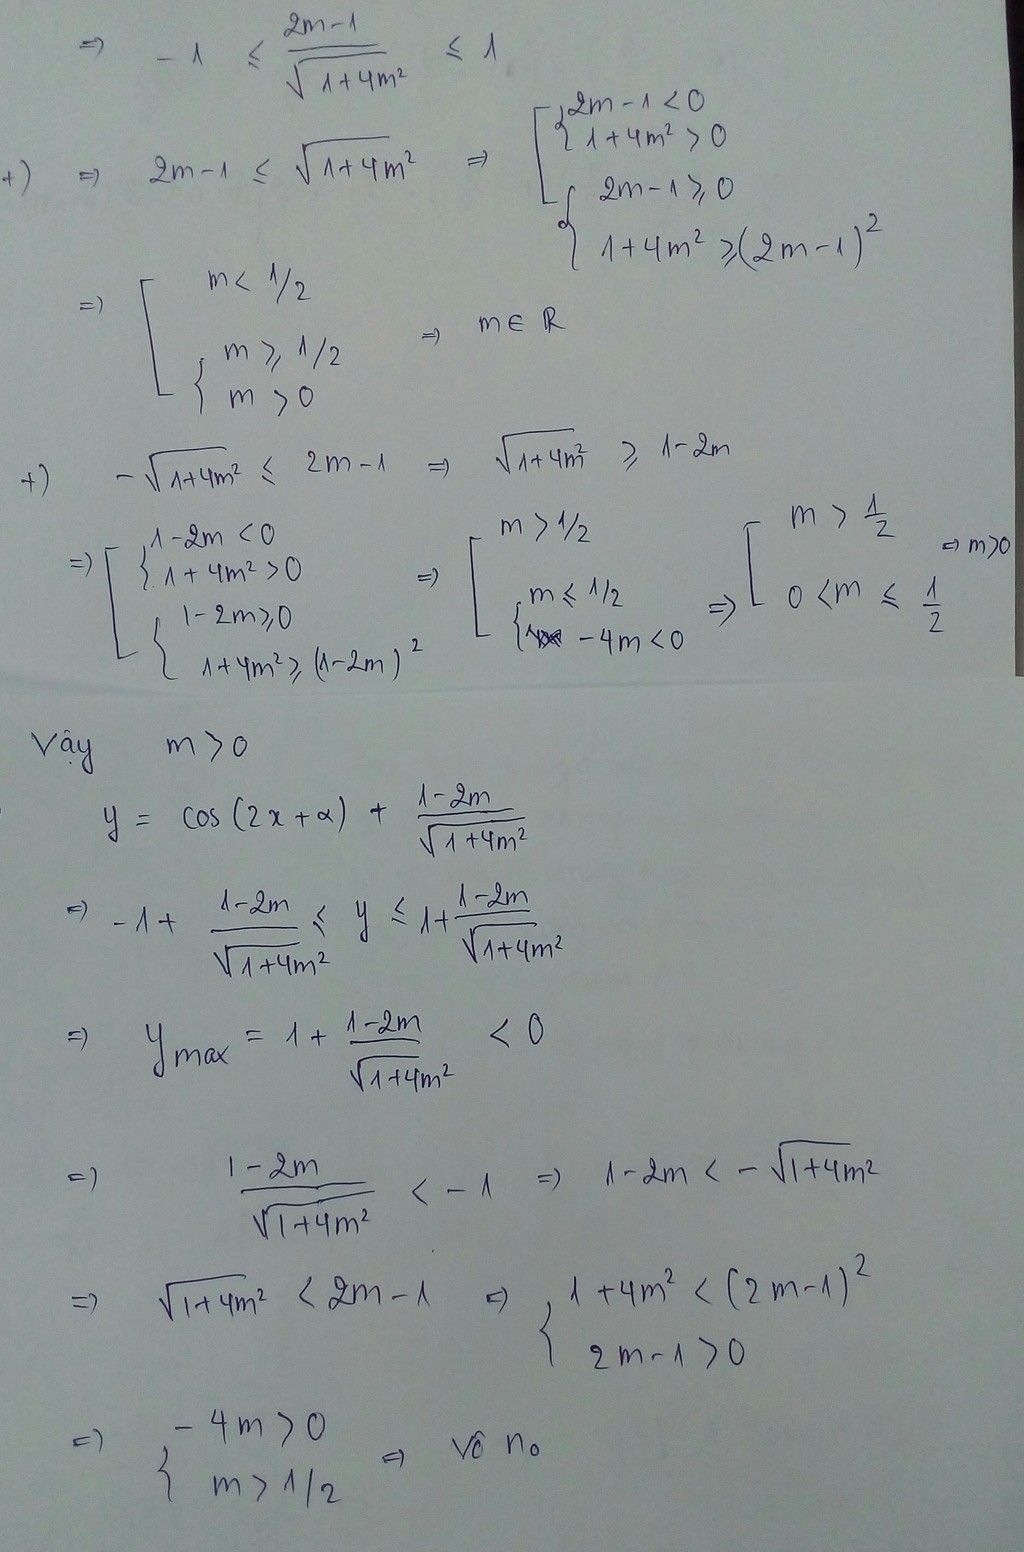 => -1 ≤ (2m-1)/√(1+4m²) ≤ 1
+) => 2m-1 ≤ √(1+4m²) => [ { 2m-1 < 0
1+4m² > 0
{ 2m-1 ≥ 0
1+4m² ≥ (2m-1)²
=> [ m < 1/2
{ m ≥ 1/2
m > 0
=> m ∈ ℝ
+) -√(1+4m²) ≤ 2m-1 => √(1+4m²) ≥ 1-2m
=> [ { 1-2m < 0
1+4m² > 0
{ 1-2m ≥ 0
1+4m² ≥ (1-2m)²
=> [ m > 1/2
{ m ≤ 1/2
-4m < 0
=> [ m > 1/2
0 < m ≤ 1/2
=> m > 0
Vậy m > 0
y = cos(2x+α) + (1-2m)/√(1+4m²)
=> -1 + (1-2m)/√(1+4m²) ≤ y ≤ 1 + (1-2m)/√(1+4m²)
=> y max = 1 + (1-2m)/√(1+4m²) < 0
=> (1-2m)/√(1+4m²) < -1 => 1-2m < -√(1+4m²)
=> √(1+4m²) < 2m-1 => { 1+4m² < (2m-1)²
2m-1 > 0
=> { -4m > 0
m > 1/2
=> vô no